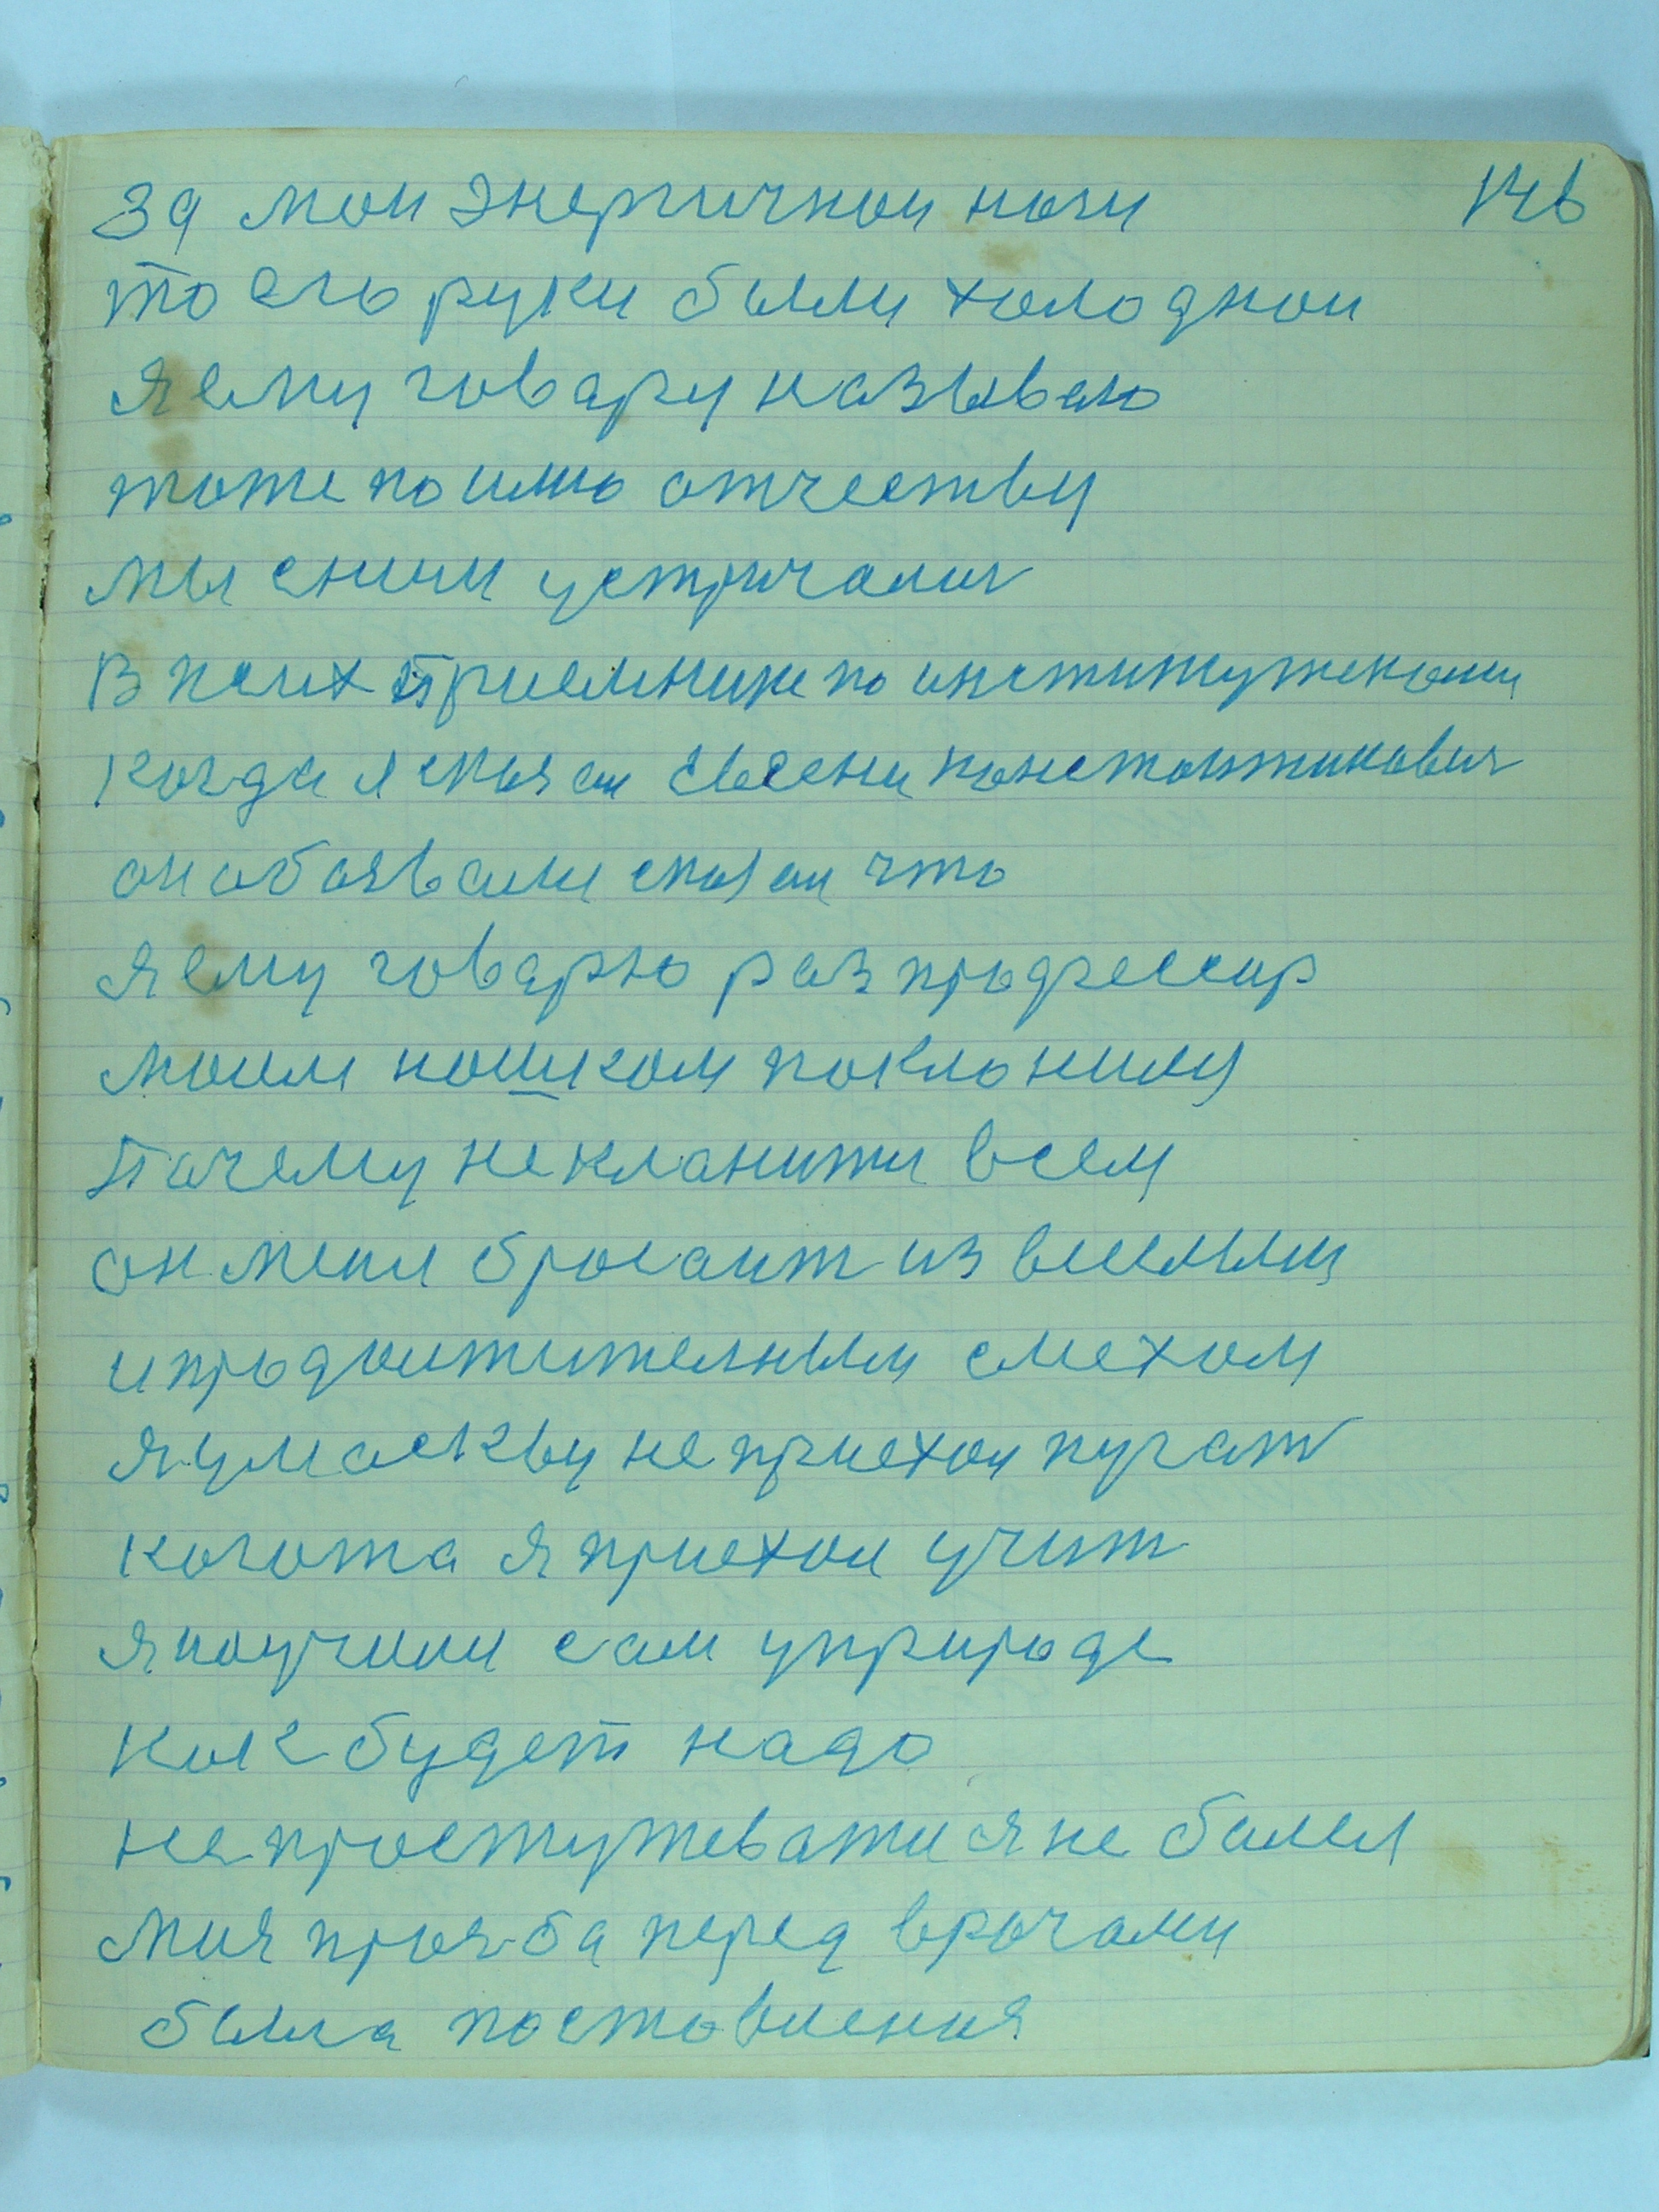 за мои энергичнои ноги 146
то его руки были холоднои
я ему говару называю
тоже по имю отчеству
мы сним устричалис
в псих приемнике по институтскому
когда я сказал Евгени констонтиновичь
он обоявали сказал что
я ему говарю раз профессор
моим ношком поклонилс
почему не кланити всем
он меня бросаит из
и продоштительным смехом
я у маскву не приехол пугат
кагота я приехол учит
я поучили сам у природе
как будет надо
не простужеватис я не балел
моя прозба перед врочами
была поставленя